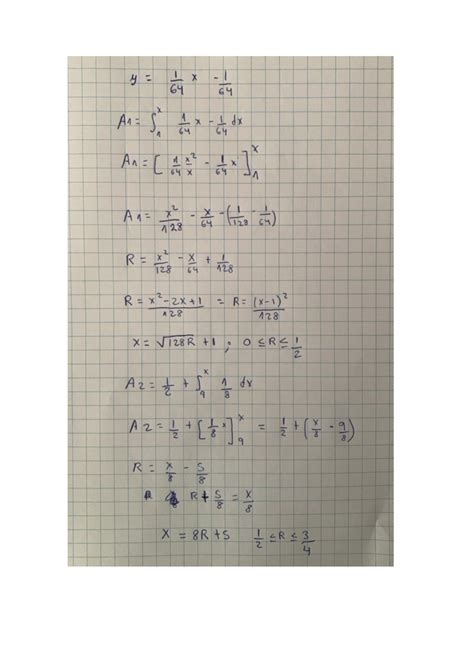 y = 1/64 x - 1/64
A1 = ∫_1^x 1/64 x - 1/64 dx
A1 = [ 1/64 x²/x - 1/64 x ]_1^x
A1 = x²/128 - x/64 - (1/128 - 1/64)
R = x²/128 - x/64 + 1/128
R = x² - 2x + 1/128 = R = (x-1)²/128
x = √128R + 1 ; 0 ≤ R ≤ 1/2
A2 = 1/2 + ∫_9^x 1/8 dx
A2 = 1/2 + [1/8 x]_9^x = 1/2 + (x/8 - 9/8)
R = x/8 - 5/8
R + 5/8 = x/8
X = 8R + 5 1/2 ≤ R ≤ 3/4